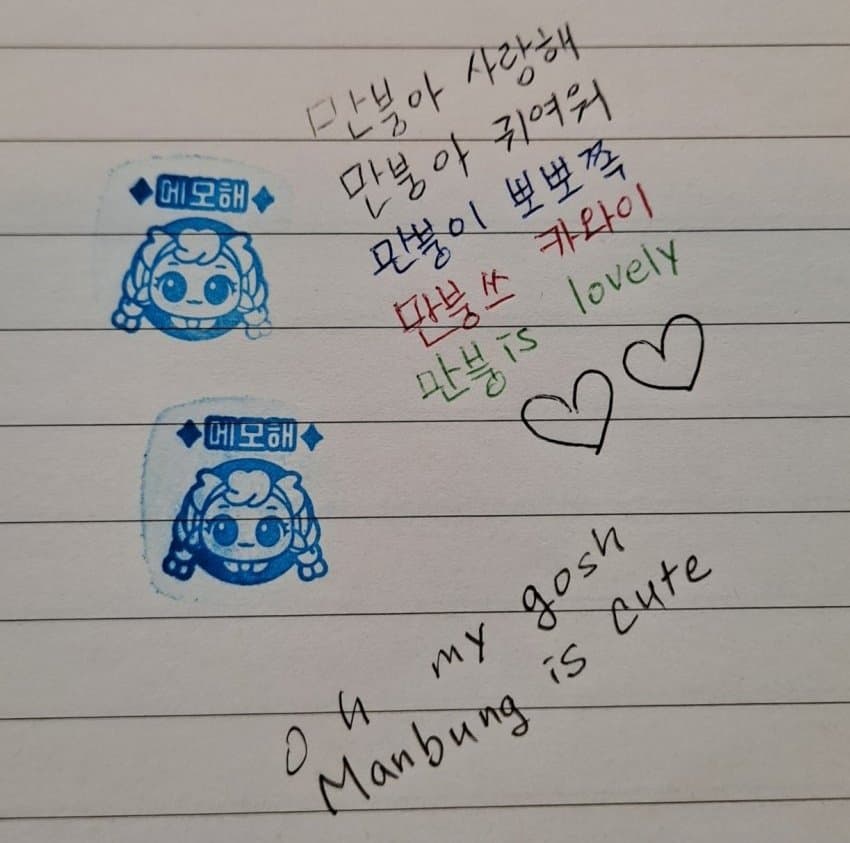 만붕아 사랑해
만붕아 귀여워
만붕이 뽀뽀쪽
만붕쓰 카와이
만붕is lovely
메모해
메모해
Oh my gosh
Manbung is cute